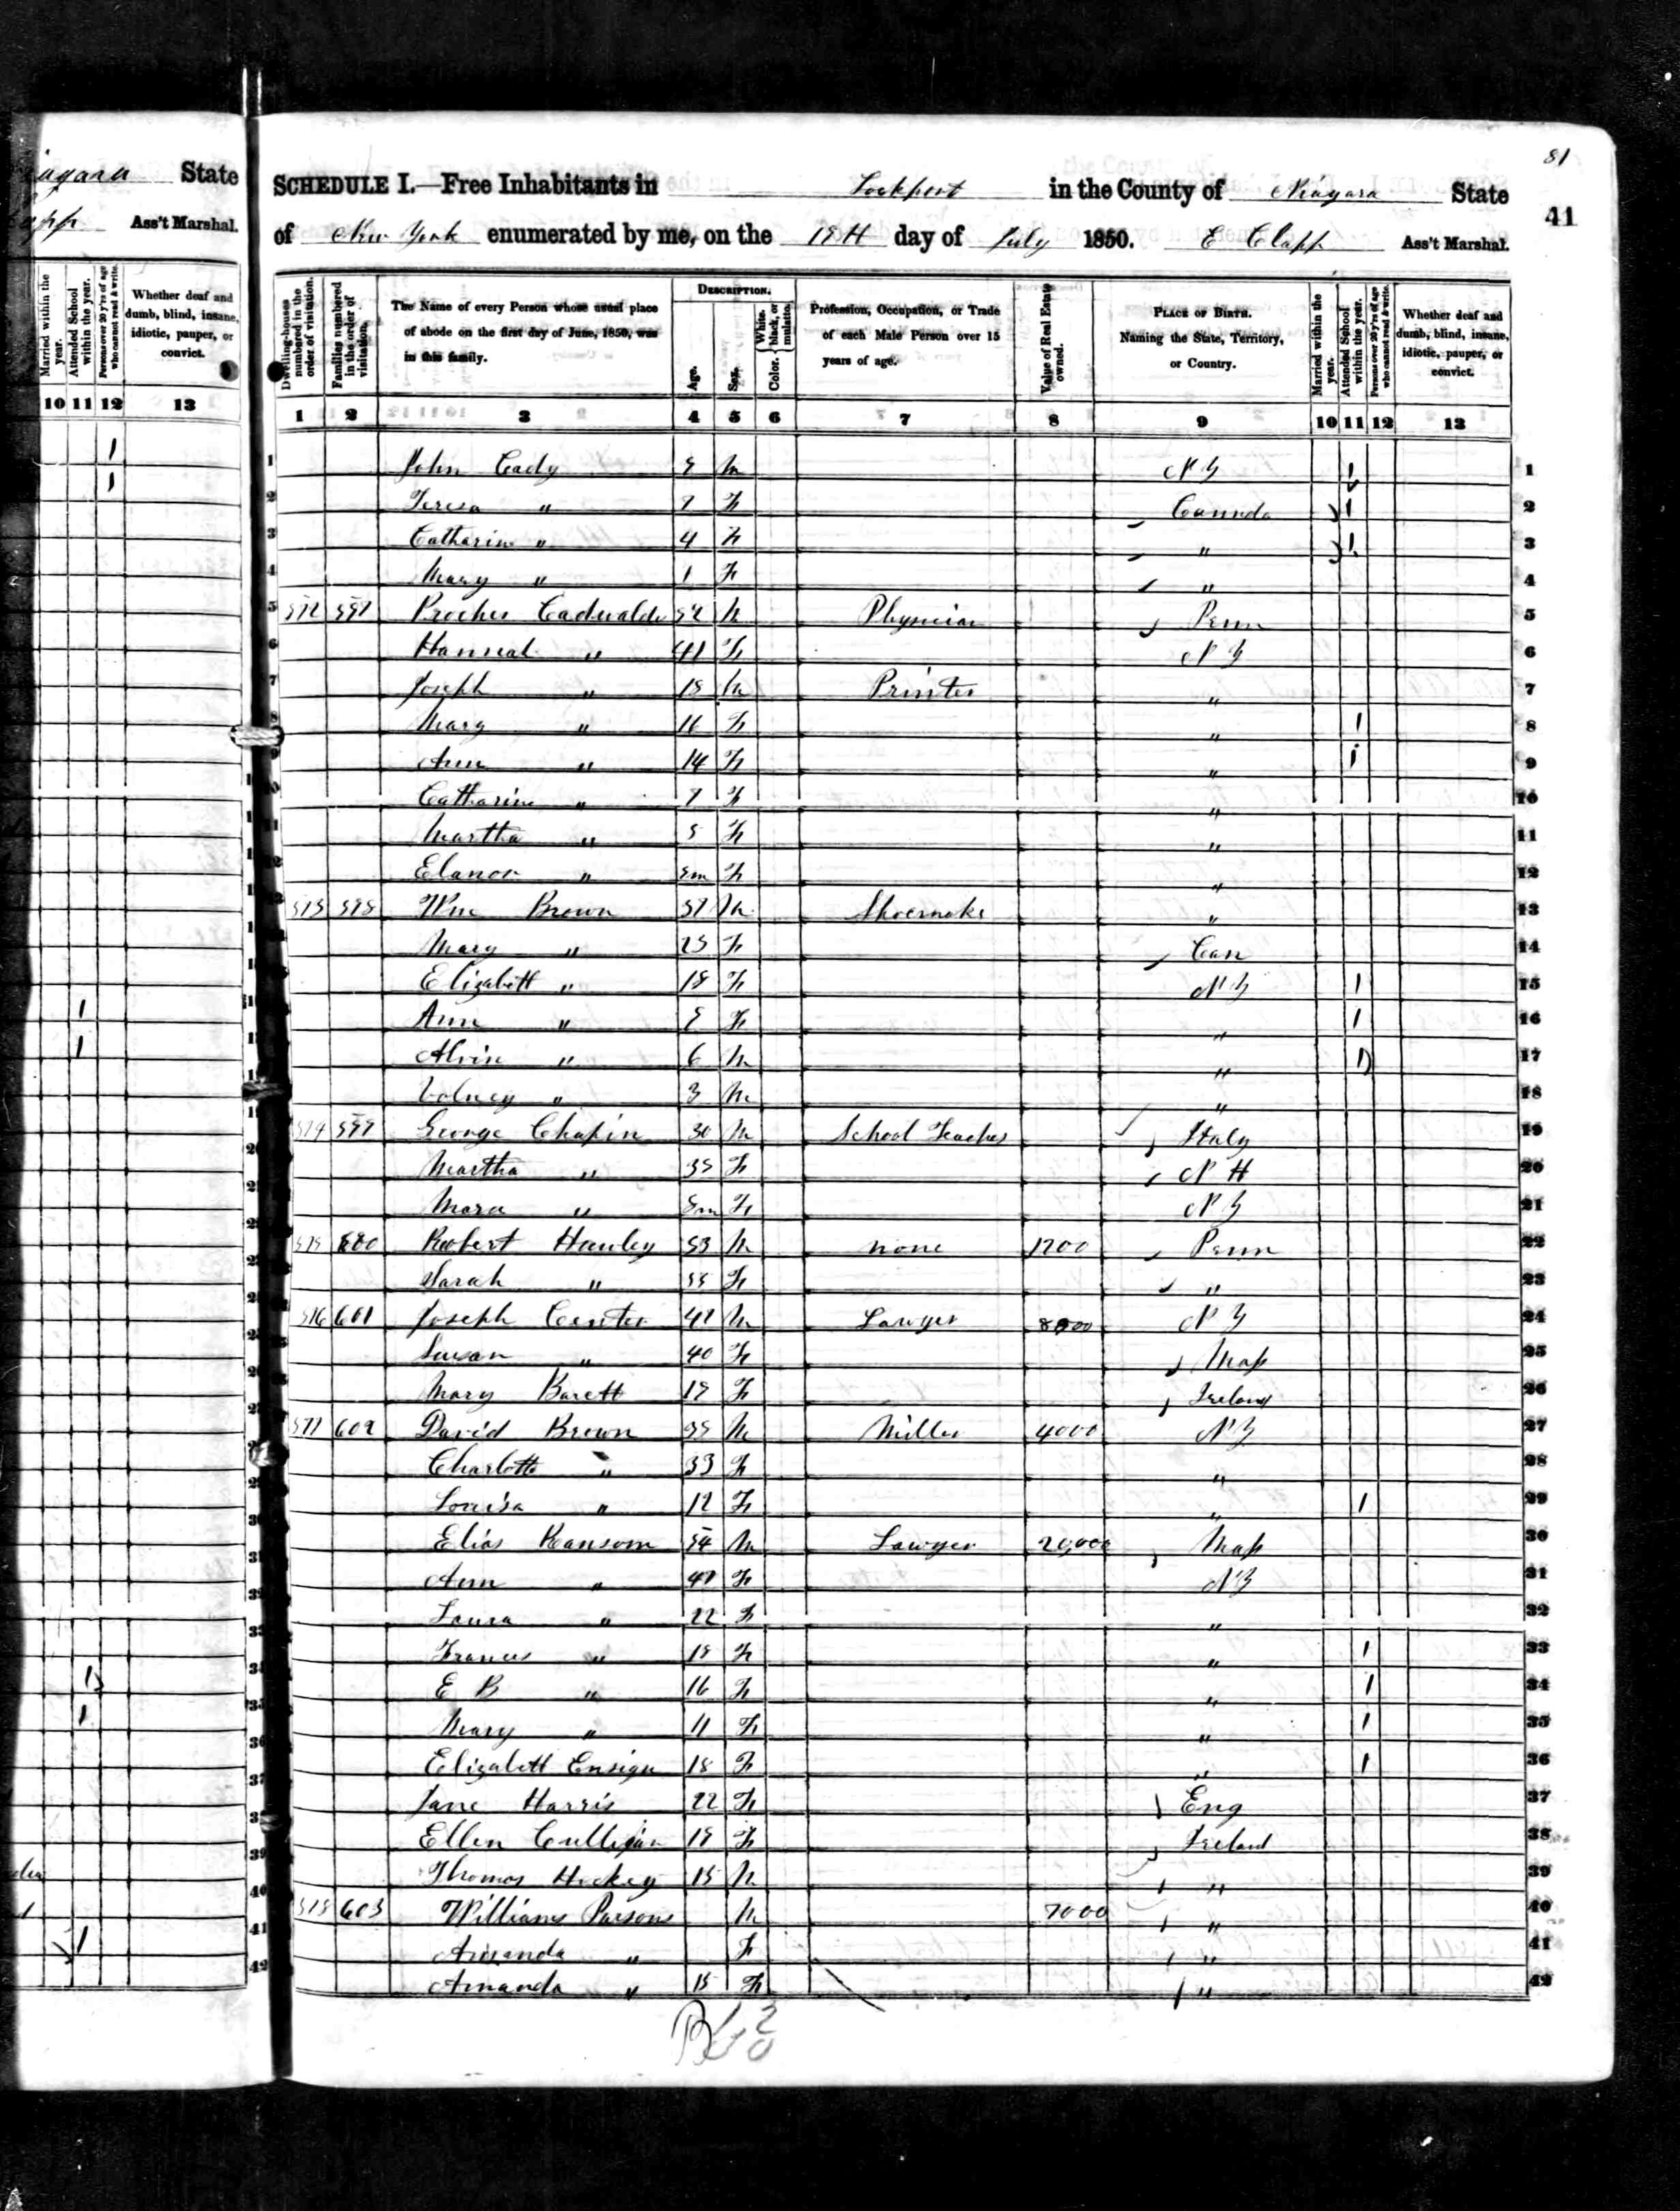 iagara State
app Ass't Marshal.
Married within the year.
Attended School within the year.
Persons over 20 y'rs of age who cannot read & write.
Whether deaf and dumb, blind, insane, idiotic, pauper, or convict.
10 11 12 13
81
41
SCHEDULE I.—Free Inhabitants in Lockport in the County of Niagara State
of New York enumerated by me, on the 18th day of July 1850. E Clapp Ass't Marshal.
Dwelling-houses numbered in the order of visitation.
Families numbered in the order of visitation.
The Name of every Person whose usual place of abode on the first day of June, 1850, was in this family.
DESCRIPTION.
Age.
Sex.
Color. White, black, or mulatto.
Profession, Occupation, or Trade of each Male Person over 15 years of age.
Value of Real Estate owned.
PLACE OF BIRTH. Naming the State, Territory, or Country.
Married within the year.
Attended School within the year.
Persons over 20 y'rs of age who cannot read & write.
Whether deaf and dumb, blind, insane, idiotic, pauper, or convict.
1 2 3 4 5 6 7 8 9 10 11 12 13
1 John Cady M N Y 1 1
2 Teresa " 7 F Canada 1 2
3 Catharine " 4 F " 1 3
4 Mary " 1 F " 4
5 Cadwalde M Physician Penn 5
6 Hannah " 41 F N Y 6
7 Joseph " 18 M Printer " 7
8 Mary " 16 F " 1 8
9 Ann " 14 F " 1 9
10 Catharine " 7 F " 10
11 Martha " 5 F " 11
12 Elanor " F " 12
13 598 Wm Brown 37 M Shoemake " 13
14 Mary " F Can 14
15 Elizabeth " 18 F N Y 1 15
16 Ann " F " 1 16
17 Alvin " 6 M " 1 17
18 Volney " 3 M " 18
19 599 George Chapin 30 M School Teacher Italy 19
20 Martha " 35 F N H 20
21 Mara " F N Y 21
22 600 Robert Hanley 53 M none 1200 Penn 22
23 Sarah " 55 F " 23
24 576 601 Joseph Center 42 M Lawyer 8000 N Y 24
25 Susan " 40 F Mass 25
26 Mary Barett 18 F Ireland 26
27 577 602 David Brown 35 M Miller 4000 N Y 27
28 Charlotte " 33 F " 28
29 Louisa " 12 F " 1 29
30 Elias Ransom 54 M Lawyer 20,000 Mass 30
31 Ann " 47 F N Y 31
32 Laura " 22 F " 32
33 Frances " 18 F " 1 33
34 E B " 16 F " 1 34
35 Mary " 11 F " 1 35
36 Elizabeth Ensign 18 F " 1 36
37 Jane Harris 22 F Eng 37
38 Ellen Culligan 18 F Ireland 38
39 Thomas Hickey 15 M " 39
40 578 603 Williams Parsons M 7000 " 40
41 Amanda " F " 41
42 Amanda " 15 F " 42